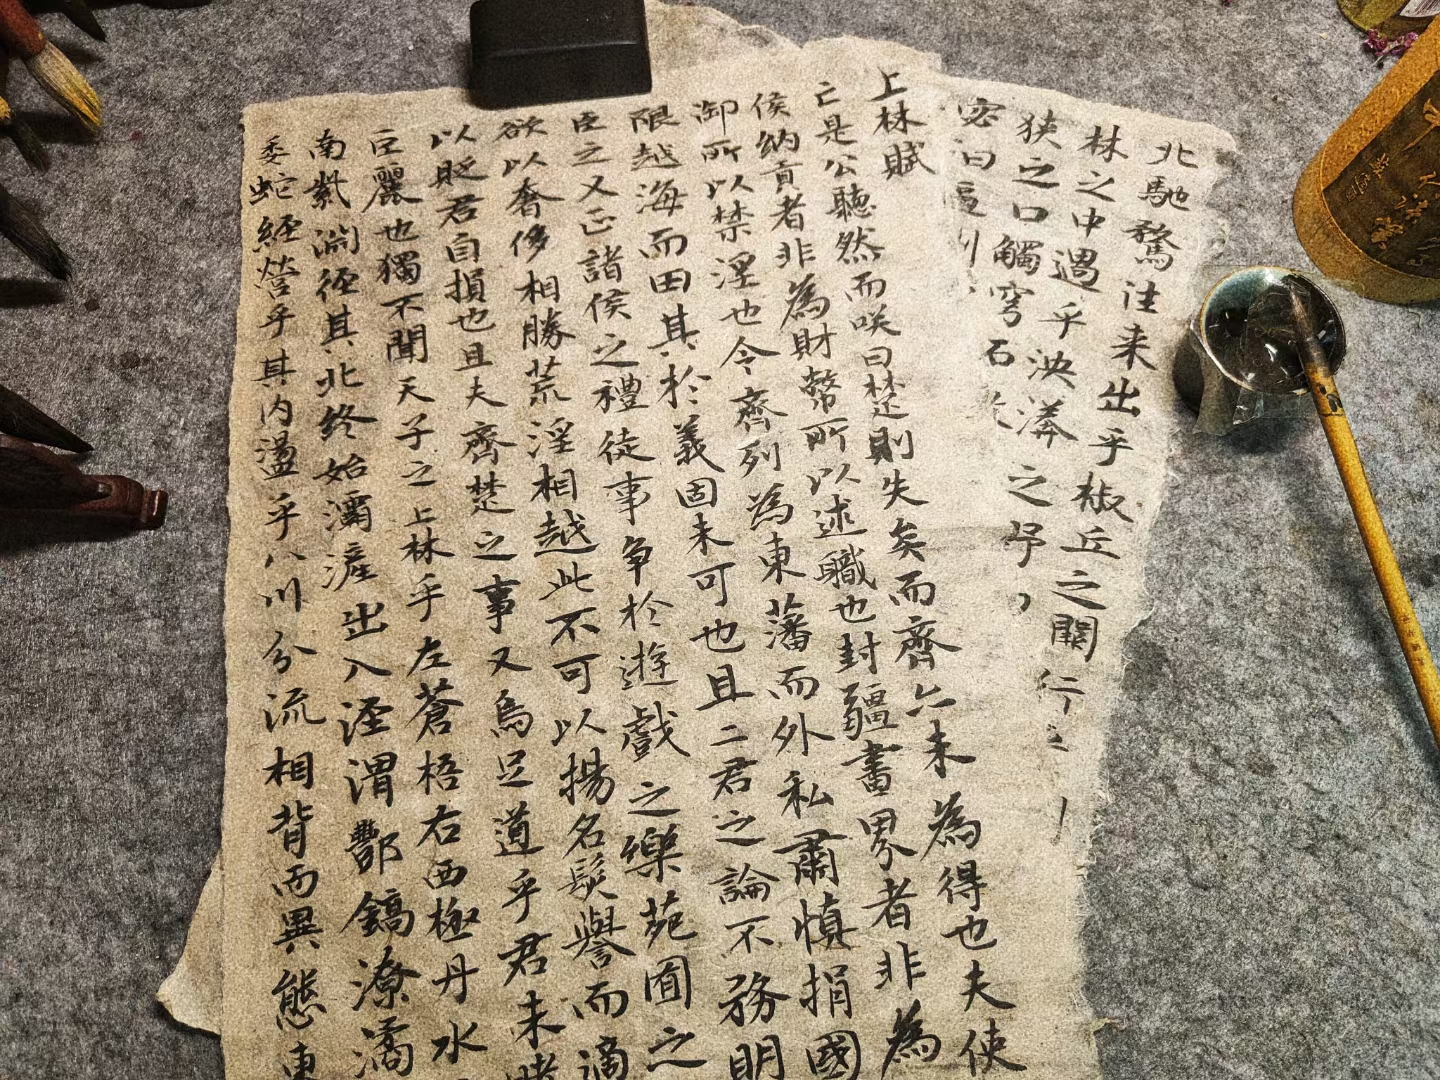 上林賦
亡是公聽然而咲曰楚則失矣而齊亦未為得也夫使
侯納貢者非為財幣所以述職也封疆畫界者非為
御所以禁淫也今齊列為東藩而外私肅慎捐國
限越海而田其於義固未可也且二君之論不務明
臣之义正諸侯之禮徒事争於遊戲之樂苑囿之
欲以奢侈相勝荒淫相越此不可以揚名發譽而適
以貶君自損也且夫齊楚之事又烏足道乎君未睹
巨麗也獨不聞天子之上林乎左蒼梧右西極丹水
南紫淵徑其北終始灞滻出入涇渭酆鎬潦潏
委蛇經營乎其内盪乎八川分流相背而異態東
北馳騖往来出乎椒丘之闕行
林之中過乎泱漭之野
狹之口觸穹石